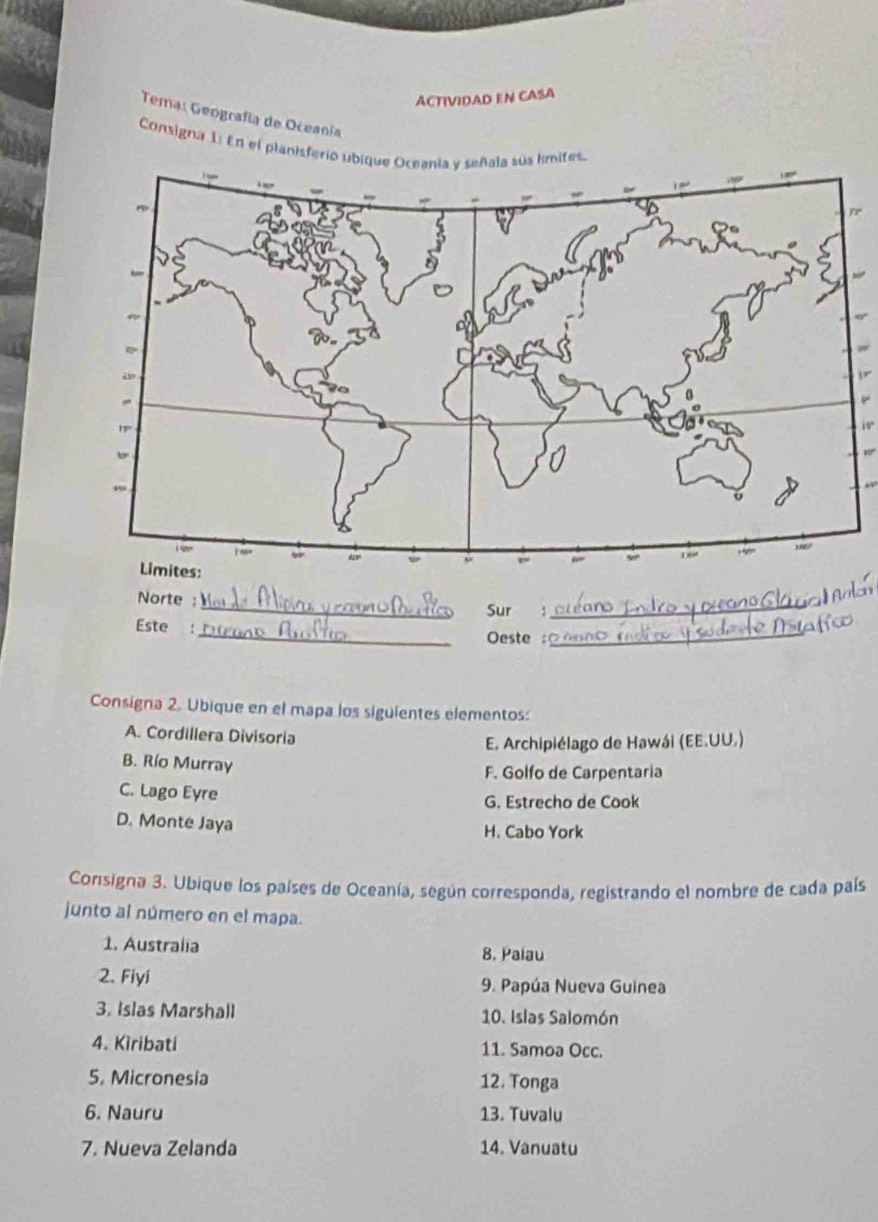 ACTIVIDAD EN CASA
Tema: Geografía de Oceanía
Consigna 1: En el planisferio ubique Oceanía y señala sus limites.
Limites:
Norte : Mar de Filipinas y oceano Pacifico
Sur : oceano Indico y oceano Glacial
Este : Oceano Pacifico
Oeste : Oceano indico y sudeste Asiatico
Consigna 2. Ubique en el mapa los siguientes elementos:
A. Cordillera Divisoria
E. Archipiélago de Hawái (EE.UU.)
B. Río Murray
F. Golfo de Carpentaria
C. Lago Eyre
G. Estrecho de Cook
D. Monte Jaya
H. Cabo York
Consigna 3. Ubique los países de Oceanía, según corresponda, registrando el nombre de cada país
junto al número en el mapa.
1. Australia
8. Palau
2. Fiyi
9. Papúa Nueva Guinea
3. Islas Marshall
10. Islas Salomón
4. Kiribati
11. Samoa Occ.
5. Micronesia
12. Tonga
6. Nauru
13. Tuvalu
7. Nueva Zelanda
14. Vanuatu